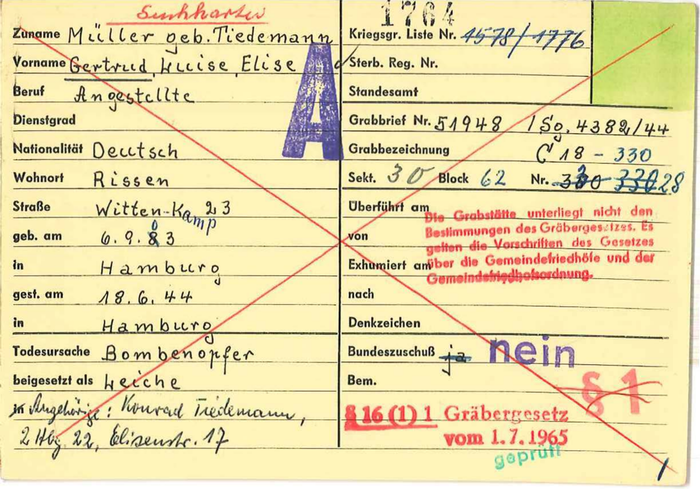 Suchkartei
1764
Zuname Müller geb. Tiedemann
Vorname Gertrud, Luise, Elise
Beruf Angestellte
Dienstgrad
Nationalität Deutsch
Wohnort Rissen
Straße Witten-Kamp 23
geb. am 6.9.03
in Hamburg
gest. am 18.6.44
in Hamburg
Todesursache Bombenopfer
beigesetzt als Leiche
Angehörige: Konrad Tiedemann,
2 Hbg. 22, Elisenstr. 17
A
Kriegsgr. Liste Nr. 1578/1776
Sterb. Reg. Nr.
Standesamt
Grabbrief Nr. 51948 / Sg. 4382/44
Grabbezeichnung C 18 - 330
Sekt. 30 Block 62 Nr. 330 330 28
Überführt am
von
Exhumiert am
nach
Denkzeichen
Die Grabstätte unterliegt nicht den
Bestimmungen des Gräbergesetzes. Es
gelten die Vorschriften des Gesetzes
über die Gemeindefriedhöfe und der
Gemeindefriedhofsordnung.
Bundeszuschuß ja nein
Bem.
§ 1
§ 16 (1) 1 Gräbergesetz
vom 1.7.1965
geprüft